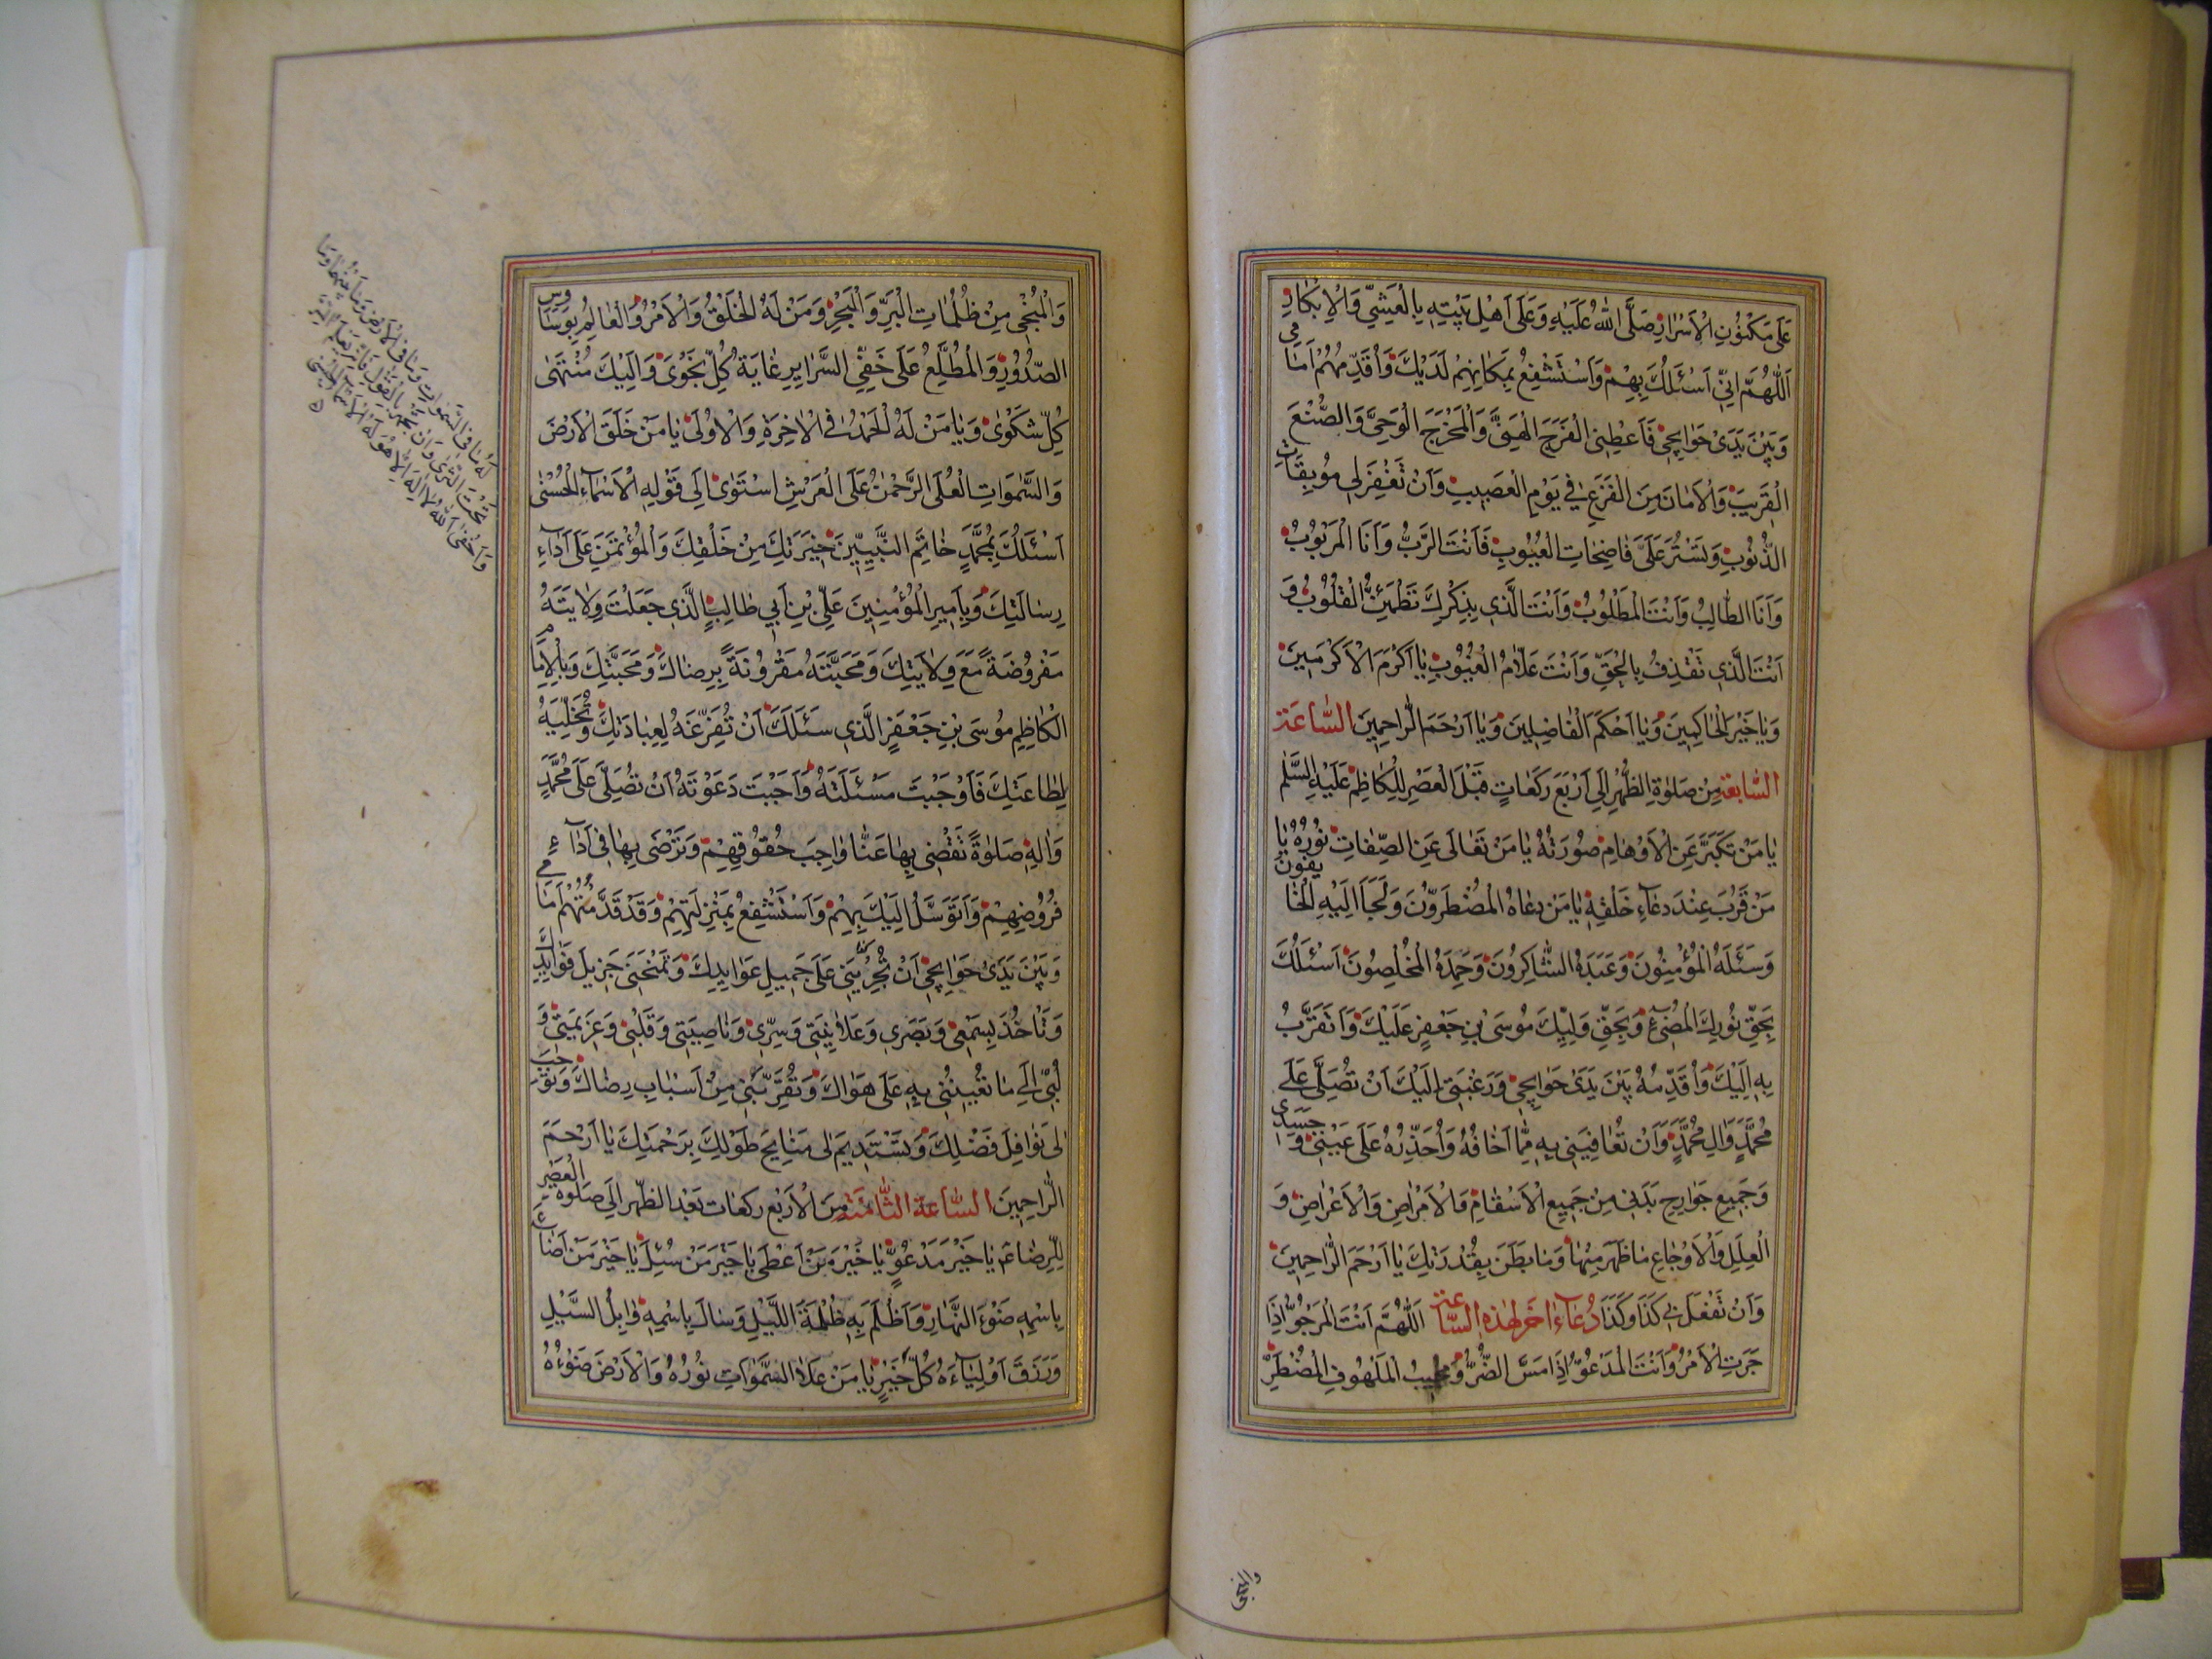 عَلَى مَكْنُونِ الْاَسْرَارِ صَلَّى اللّٰهُ عَلَيْهِ وَعَلَى اَهْلِ بَيْتِهِ بِالْعَشِيِّ وَالْاِبْكَارِ
اَللّٰهُمَّ اِنِّي اَسْئَلُكَ بِهِمْ وَاَسْتَشْفِعُ بِمَكَانِهِمْ لَدَيْكَ وَاُقَدِّمُهُمْ اَمَامِي
وَبَيْنَ يَدَيْ حَوَايِجِي فَاَعْطِنِي الْفَرَجَ الْهَنِيَّ وَالْمَخْرَجَ الْوَحِيَّ وَالصُّنْعَ
الْقَرِيبَ وَالْاَمَانَ مِنَ الْفَزَعِ فِي يَوْمِ الْعَصِيبِ وَاَنْ تَغْفِرَ لِي مُوبِقَاتِ
الذُّنُوبِ وَتَسْتُرَ عَلَيَّ فَاضِحَاتِ الْعُيُوبِ فَاَنْتَ الرَّبُّ وَاَنَا الْمَرْبُوبُ
وَاَنَا الطَّالِبُ وَاَنْتَ الْمَطْلُوبُ وَاَنْتَ الَّذِي بِذِكْرِكَ تَطْمَئِنُّ الْقُلُوبُ وَ
اَنْتَ الَّذِي تَقْذِفُ بِالْحَقِّ وَاَنْتَ عَلَّامُ الْغُيُوبِ يَا اَكْرَمَ الْاَكْرَمِينَ
وَيَا خَيْرَ الْحَاكِمِينَ وَيَا اَحْكَمَ الْفَاصِلِينَ وَيَا اَرْحَمَ الرَّاحِمِينَ السَّاعَة
السَّابِعَة مِنْ صَلٰوةِ الظُّهْرِ اِلَى اَرْبَعِ رَكَعَاتٍ قَبْلَ الْعَصْرِ لِلْكَاظِمِ عَلَيْهِ السَّلٰم
يَا مَنْ تَكَبَّرَ عَنِ الْاَوْهَامِ صُورَتُهُ يَا مَنْ تَعَالَى عَنِ الصِّفَاتِ نُورُهُ يَا
مَنْ قَرُبَ عِنْدَ دُعَاءِ خَلْقِهِ يَا مَنْ دَعَاهُ الْمُضْطَرُّونَ وَلَجَاَ اِلَيْهِ الْخَايِفُونَ
وَسَئَلَهُ الْمُؤْمِنُونَ وَعَبَدَهُ الشَّاكِرُونَ وَحَمِدَهُ الْمُخْلِصُونَ اَسْئَلُكَ
بِحَقِّ نُورِكَ الْمُضِيءِ وَبِحَقِّ وَلِيِّكَ مُوسَى بْنِ جَعْفَرٍ عَلَيْكَ وَاَتَقَرَّبُ
بِهِ اِلَيْكَ وَاُقَدِّمُهُ بَيْنَ يَدَيْ حَوَايِجِي وَرَغْبَتِي اِلَيْكَ اَنْ تُصَلِّيَ عَلَى
مُحَمَّدٍ وَالِ مُحَمَّدٍ وَاَنْ تُعَافِيَنِي بِهِ مِمَّا اَخَافُهُ وَاُحَذِّرُهُ عَلَى عَيْنِي وَجَسَدِي
وَجَمِيعِ جَوَارِحِ بَدَنِي مِنْ جَمِيعِ الْاَسْقَامِ وَالْاَمْرَاضِ وَالْاَعْرَاضِ وَ
الْعِلَلِ وَالْاَوْجَاعِ مَا ظَهَرَ مِنْهَا وَمَا بَطَنَ بِقُدْرَتِكَ يَا اَرْحَمَ الرَّاحِمِينَ
وَاَنْ تَفْعَلَ بِي كَذَا وَكَذَا دُعَاء اخَر لِهٰذِهِ السَّاعَة اَللّٰهُمَّ اَنْتَ الْمَرْجُوُّ اِذَا
جَرَتِ الْاُمُرُ وَاَنْتَ الْمَدْعُوُّ اِذَا مَسَّ الضُّرُّ وَمُجِيبُ الْمَلْهُوفِ الْمُضْطَرِّ
وَالْمُنْجِي
وَالْمُنْجِي مِنْ ظُلُمَاتِ الْبَرِّ وَالْبَحْرِ وَمَنْ لَهُ الْخَلْقُ وَالْاَمْرُ وَالْعَالِمُ بِوَسَاوِسِ
الصُّدُورِ وَالْمُطَّلِعُ عَلَى خَفِيِّ السَّرَايِرِ غَايَةُ كُلِّ نَجْوَى وَاِلَيْكَ مُنْتَهَى
كُلِّ شَكْوٰى وَيَا مَنْ لَهُ الْحَمْدُ فِي الْاٰخِرَةِ وَالْاُولَى يَا مَنْ خَلَقَ الْاَرْضَ
وَالسَّمٰوَاتِ الْعُلَى الرَّحْمٰنُ عَلَى الْعَرْشِ اسْتَوٰى اِلَى قَوْلِهِ الْاَسْمَاءُ الْحُسْنٰى
اَسْئَلُكَ بِمُحَمَّدٍ خَاتَمِ النَّبِيِّينَ خِيَرَتِكَ مِنْ خَلْقِكَ وَالْمُؤْتَمَنِ عَلَى اَدَاءِ
رِسَالَتِكَ وَبِاَمِيرِ الْمُؤْمِنِينَ عَلِيِّ بْنِ اَبِي طَالِبٍ الَّذِي جَعَلْتَ وِلَايَتَهُ
مَفْرُوضَةً مَعَ وِلَايَتِكَ وَمَحَبَّتَهُ مَقْرُونَةً بِرِضَاكَ وَمَحَبَّتِكَ وَبِالْاِمَامِ
الْكَاظِمِ مُوسَى بْنِ جَعْفَرٍ الَّذِي سَئَلَكَ اَنْ تُفَرِّغَهُ لِعِبَادَتِكَ وَتُخَلِّيَهُ
لِطَاعَتِكَ فَاَوْجَبْتَ مَسْئَلَتَهُ وَاَجَبْتَ دَعْوَتَهُ اَنْ تُصَلِّيَ عَلَى مُحَمَّدٍ
وَاٰلِهِ صَلٰوةً تَقْضِي بِهَا عَنَّا وَاجِبَ حُقُوقِهِمْ وَتَرْضَى بِهَا فِي اَدَاءِ
فُرُوضِهِمْ وَاَتَوَسَّلُ اِلَيْكَ بِهِمْ وَاَسْتَشْفِعُ بِمَنْزِلَتِهِمْ وَقَدْ قَدَّمْتُهُمْ اَمَامِي
وَبَيْنَ يَدَيْ حَوَايِجِي اَنْ تُجْرِيَنِي عَلَى جَمِيلِ عَوَايِدِكَ وَتَمْنَحَنِي جَزِيلَ فَوَايِدِكَ
وَتَاْخُذَ بِسَمْعِي وَبَصَرِي وَعَلَانِيَتِي وَسِرِّي وَنَاصِيَتِي وَقَلْبِي وَعَزِيمَتِي وَ
لُبِّي اِلَى مَا تُعِينُنِي بِهِ عَلَى هَوَاكَ وَتُقَرِّبُنِي مِنْ اَسْبَابِ رِضَاكَ وَتُوجِبَ
لِي نَوَافِلَ فَضْلِكَ وَتَسْتَدِيمَ لِي مَنَايِحَ طَوْلِكَ بِرَحْمَتِكَ يَا اَرْحَمَ
الرَّاحِمِينَ السَّاعَة الثَّامِنَة مِنَ الْاَرْبَعِ رَكَعَاتِ بَعْدَ الظُّهْرِ اِلَى صَلٰوةِ الْعَصْرِ
لِلرِّضَا ع يَا خَيْرَ مَدْعُوٍّ يَا خَيْرَ مَنْ اَعْطَى يَا خَيْرَ مَنْ سُئِلَ يَا خَيْرَ مَنْ اَضَاءَ
بِاسْمِهِ ضَوْءُ النَّهَارِ وَاَظْلَمَ بِهِ ظُلْمَةُ اللَّيْلِ وَسَالَ بِاسْمِهِ وَابِلُ السَّيْلِ
وَرَزَقَ اَوْلِيَاءَهُ كُلَّ خَيْرٍ يَا مَنْ عَلَا السَّمٰوَاتِ نُورُهُ وَالْاَرْضَ ضَوْءُهُ
لَهُ مَا فِي السَّمٰوَاتِ وَمَا فِي الْاَرْضِ وَمَا بَيْنَهُمَا وَمَا
تَحْتَ الثَّرٰى وَاِنْ تَجْهَرْ بِالْقَوْلِ فَاِنَّهُ يَعْلَمُ السِّرَّ
وَاَخْفٰى اَللّٰهُ لَا اِلٰهَ اِلَّا هُوَ لَهُ الْاَسْمَاءُ الْحُسْنٰى